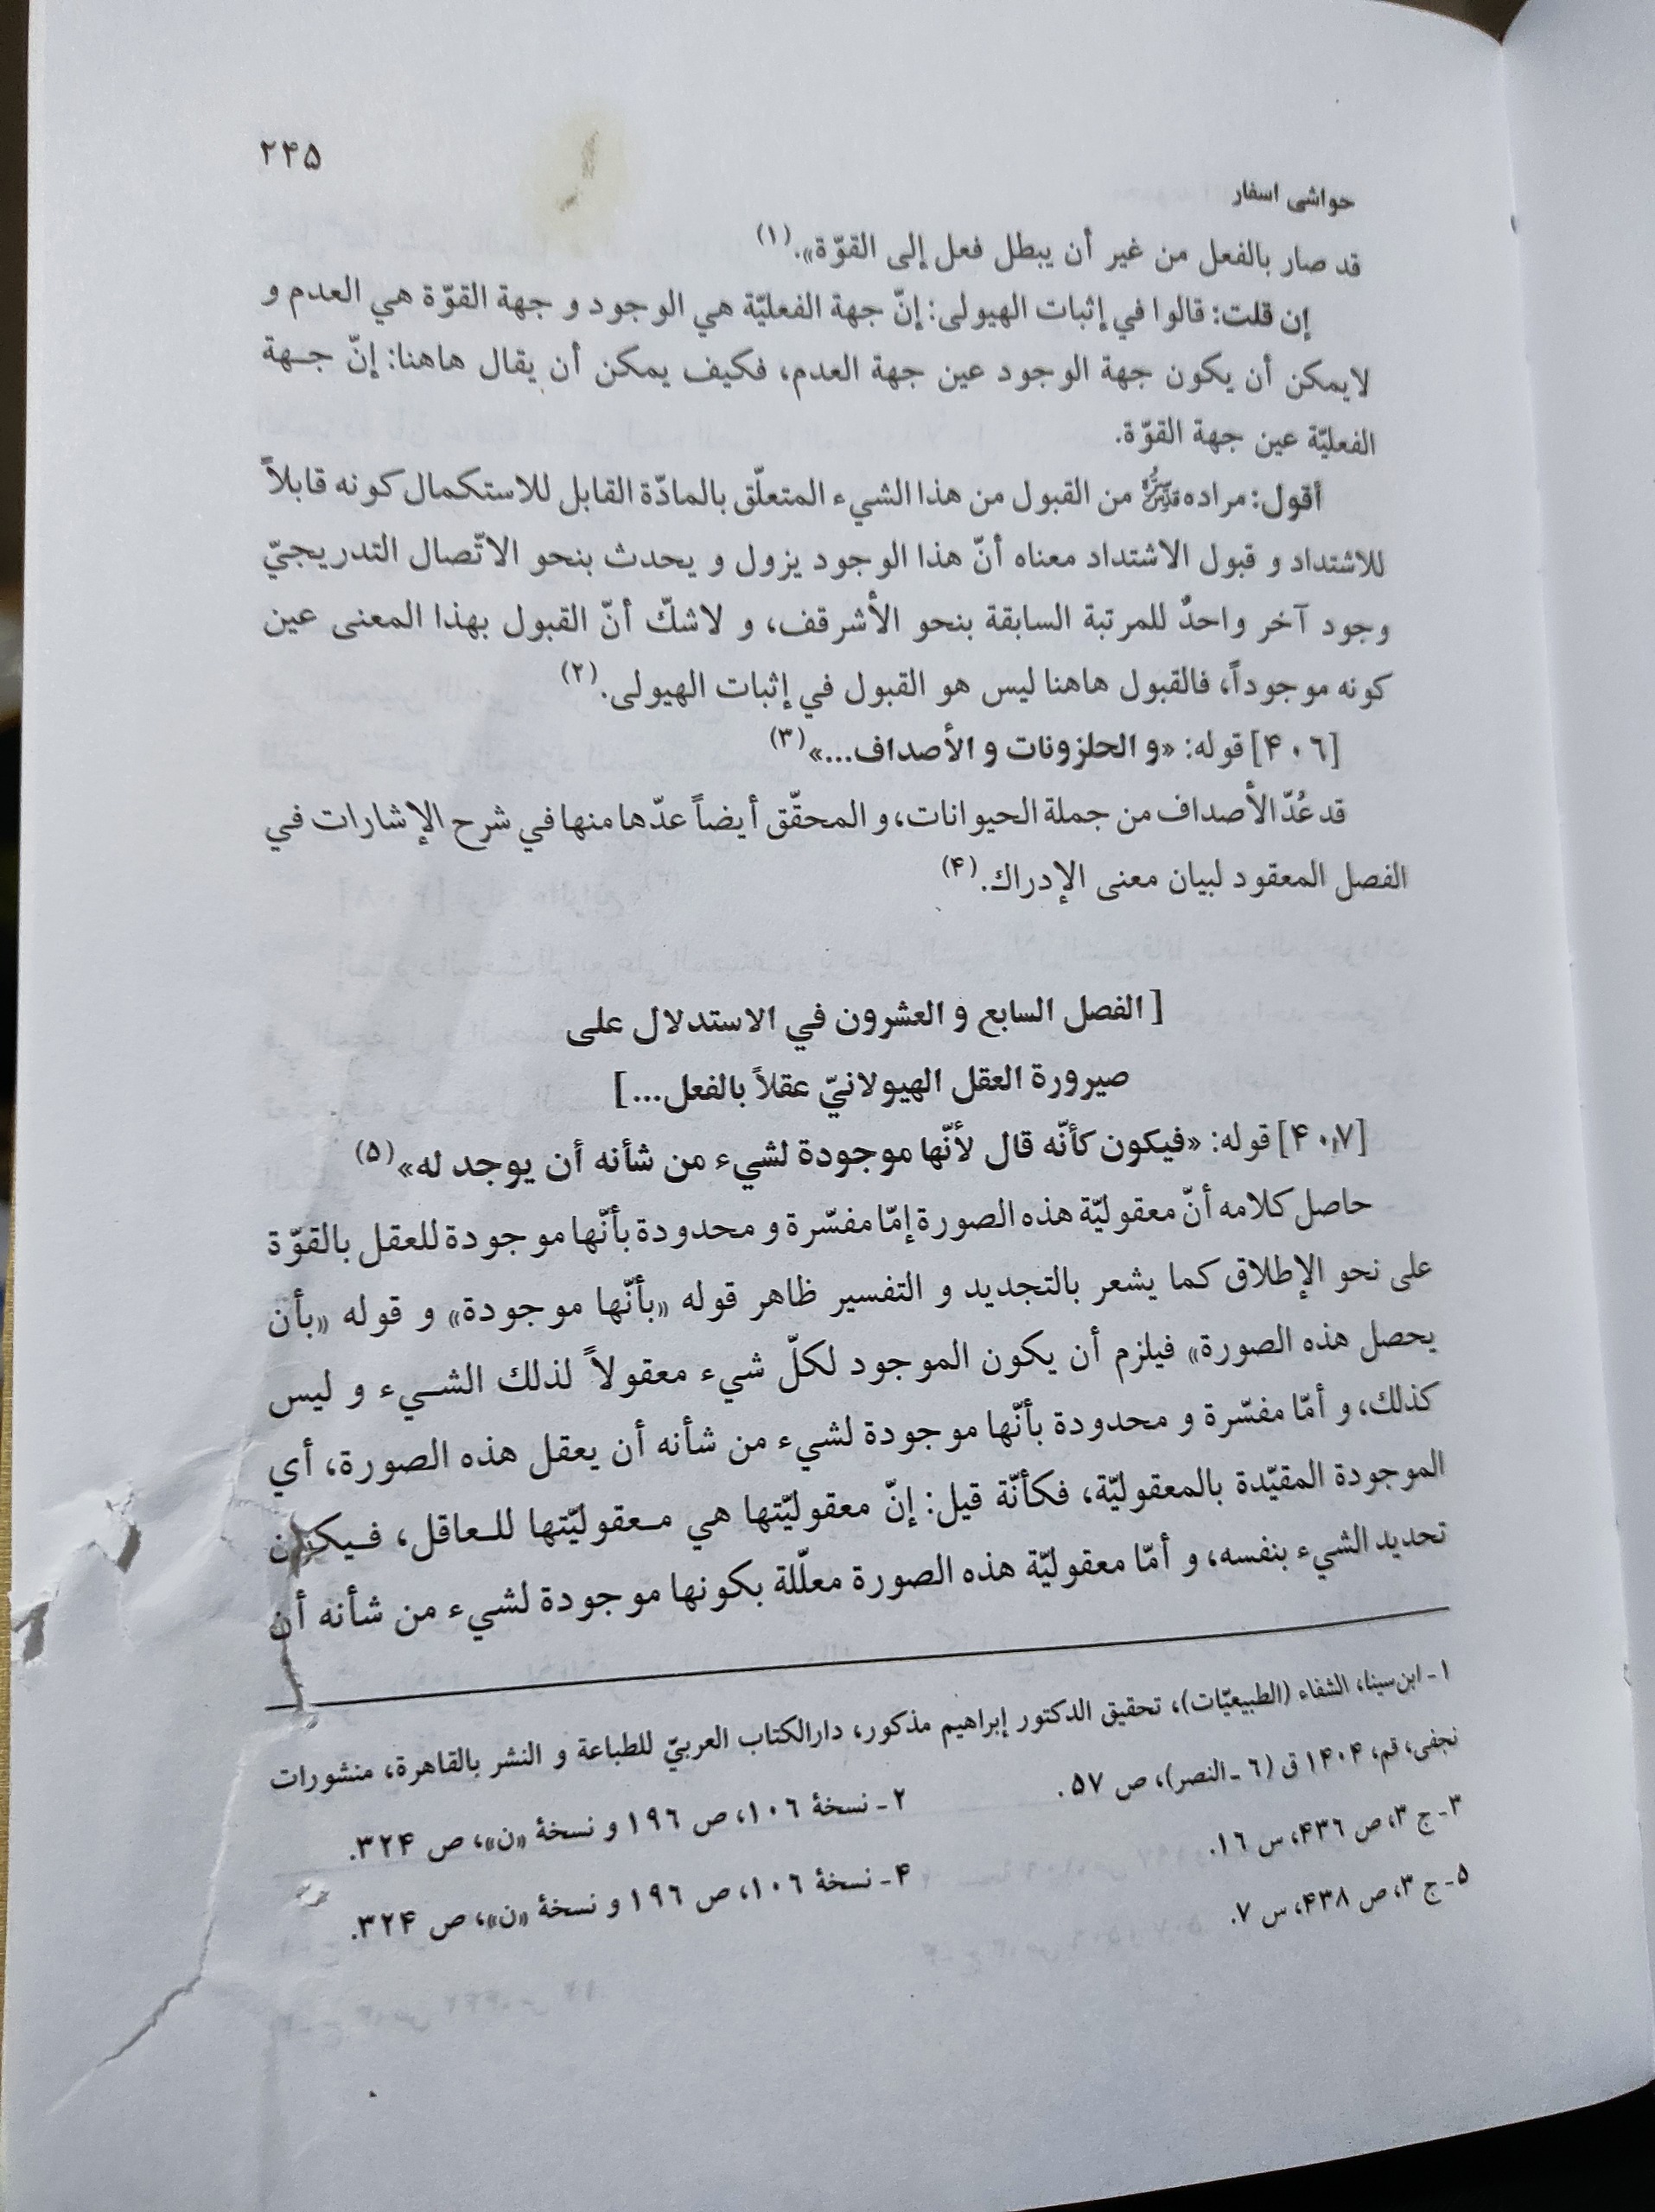 ۲۴۵
حواشی اسفار
قد صار بالفعل من غير أن يبطل فعل إلى القوّة».(۱)
إن قلت: قالوا في إثبات الهيولى: إنّ جهة الفعليّة هي الوجود و جهة القوّة هي العدم و
لايمكن أن يكون جهة الوجود عين جهة العدم، فكيف يمكن أن يقال هاهنا: إنّ جـهة
الفعليّة عين جهة القوّة.
أقول: مراده قدّس سرّه من القبول من هذا الشيء المتعلّق بالمادّة القابل للاستكمال كونه قابلاً
للاشتداد و قبول الاشتداد معناه أنّ هذا الوجود يزول و يحدث بنحو الاتّصال التدريجيّ
وجود آخر واحدٌ للمرتبة السابقة بنحو الأشرقف، و لاشكّ أنّ القبول بهذا المعنى عين
كونه موجوداً، فالقبول هاهنا ليس هو القبول في إثبات الهيولى.(۲)
[۴۰٦] قوله: «و الحلزونات و الأصداف...»(۳)
قد عُدّ الأصداف من جملة الحيوانات، و المحقّق أيضاً عدّها منها في شرح الإشارات في
الفصل المعقود لبيان معنى الإدراك.(۴)
[الفصل السابع و العشرون في الاستدلال على
صيرورة العقل الهيولانيّ عقلاً بالفعل...]
[۴۰۷] قوله: «فيكون كأنّه قال لأنّها موجودة لشيء من شأنه أن يوجد له»(۵)
حاصل كلامه أنّ معقوليّة هذه الصورة إمّا مفسّرة و محدودة بأنّها موجودة للعقل بالقوّة
على نحو الإطلاق كما يشعر بالتجديد و التفسير ظاهر قوله «بأنّها موجودة» و قوله «بأن
يحصل هذه الصورة» فيلزم أن يكون الموجود لكلّ شيء معقولاً لذلك الشـيء و ليس
كذلك، و أمّا مفسّرة و محدودة بأنّها موجودة لشيء من شأنه أن يعقل هذه الصورة، أي
الموجودة المقيّدة بالمعقوليّة، فكأنّة قيل: إنّ معقوليّتها هي مـعقوليّتها للـعاقل، فـيكون
تحديد الشيء بنفسه، و أمّا معقوليّة هذه الصورة معلّلة بكونها موجودة لشيء من شأنه أن
۱ـ ابن‌سينا، الشفاء (الطبيعيّات)، تحقيق الدكتور إبراهيم مذكور، دارالكتاب العربيّ للطباعة و النشر بالقاهرة، منشورات
نجفی، قم، ۱۴۰۴ ق (٦ ـ النصر)، ص ۵۷. ۲ـ نسخهٔ ۱۰٦، ص ۱۹٦ و نسخهٔ «ن»، ص ۳۲۴.
۳ـ ج ۳، ص ۴۳٦، س ۱٦. ۴ـ نسخهٔ ۱۰٦، ص ۱۹٦ و نسخهٔ «ن»، ص ۳۲۴.
۵ـ ج ۳، ص ۴۳۸، س ۷.